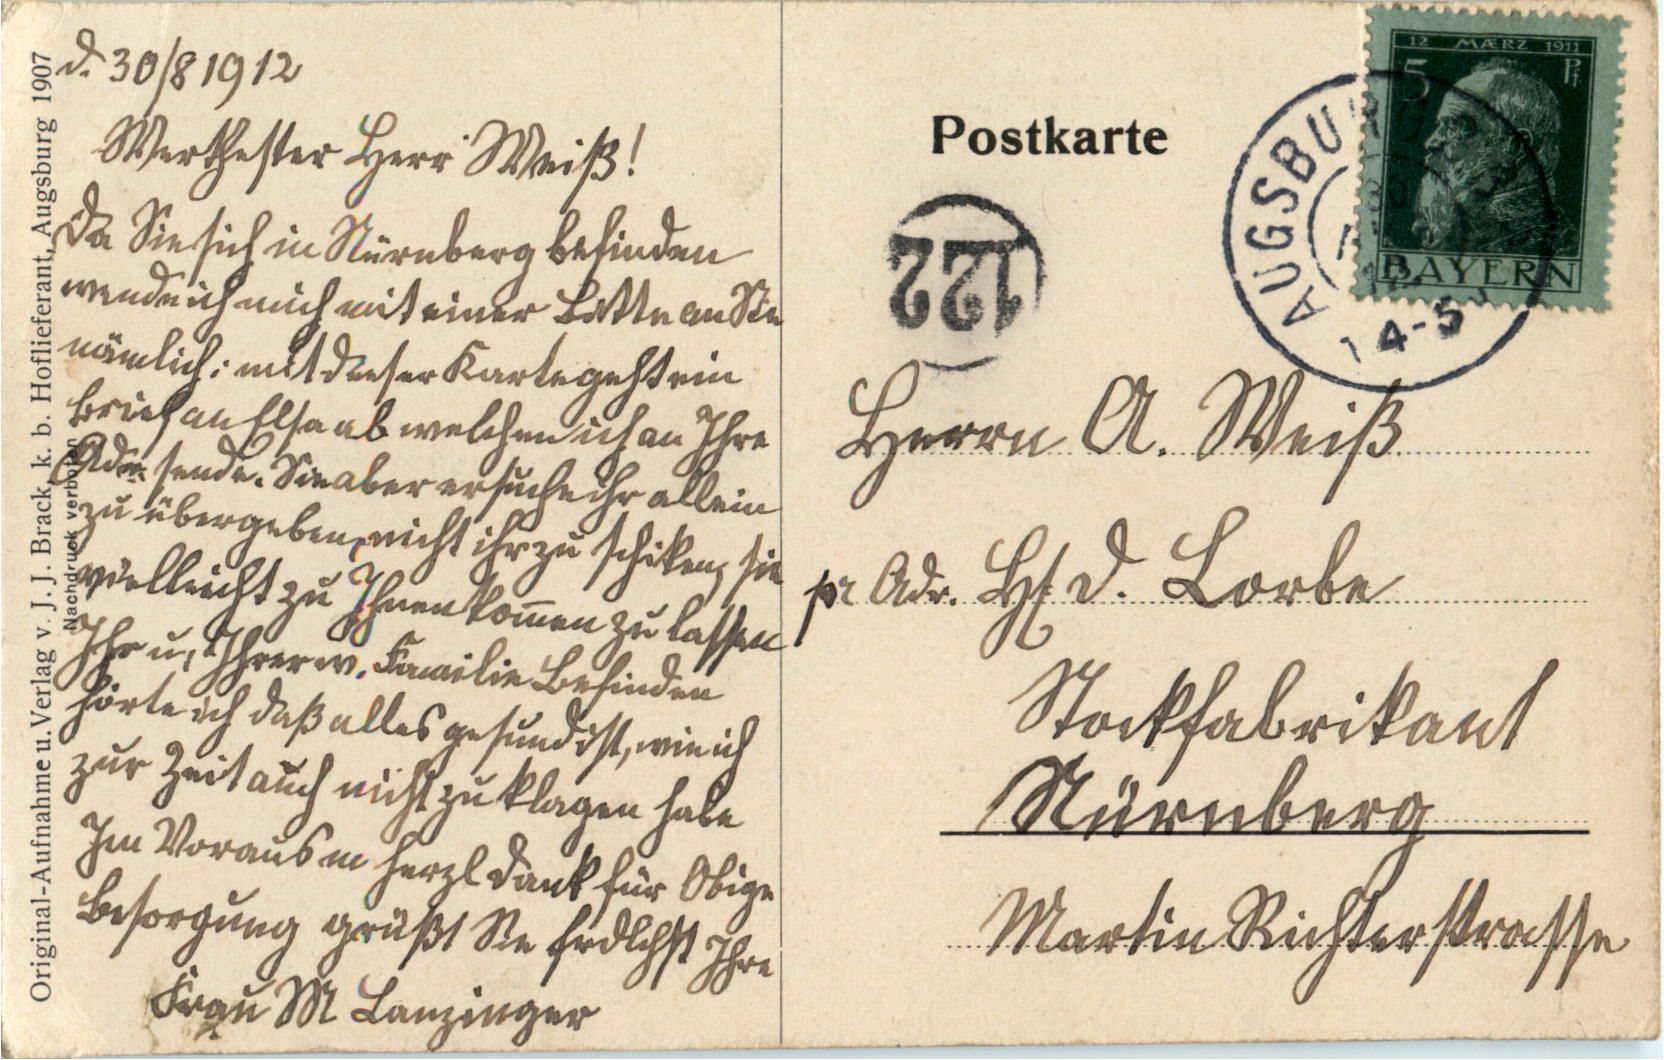 Original-Aufnahme u. Verlag v. J. J. Brack, k. b. Hoflieferant, Augsburg 1907
Nachdruck verboten
d. 30/8 1912
Werthester Herr Weiß!
Da Sie sich in Nürnberg befinden
wende ich mich mit einer Bitte an Sie
nämlich: mit dieser Karte geht ein
Brief an Elsa ab welchen ich an Ihre
Adr. sende. Sie aber ersuche ihr allein
zu übergeben, nicht ihr zu schiken, sie
vielleicht zu Ihnen kom̄en zu lassen
Ihr u, Ihrer w. Familie Befinden
hörte ich daß alles gesund ist, wie ich
zur Zeit auch nicht zu klagen habe
Im Voraus m herzl Dank für Obige
Besorgung grüßt Sie frdlchst Ihre
Frau M Lanzinger
Postkarte
12 MÆRZ 1911
5 Pf
BAYERN
AUGSBU
4-5
122
Herrn A. Weiß
pr Adr. H. d. Lorbe
Stockfabrikant
Nürnberg
Martin Richterstrasse